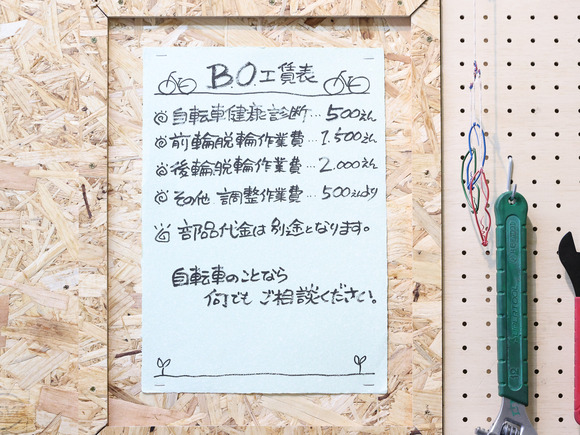 B.O.工賃表
自転車健康診断…500えん
前輪脱輪作業費…1.500えん
後輪脱輪作業費…2.000えん
その他 調整作業費…500えんより
部品代金は別途となります。
自転車のことなら
何でもご相談ください。